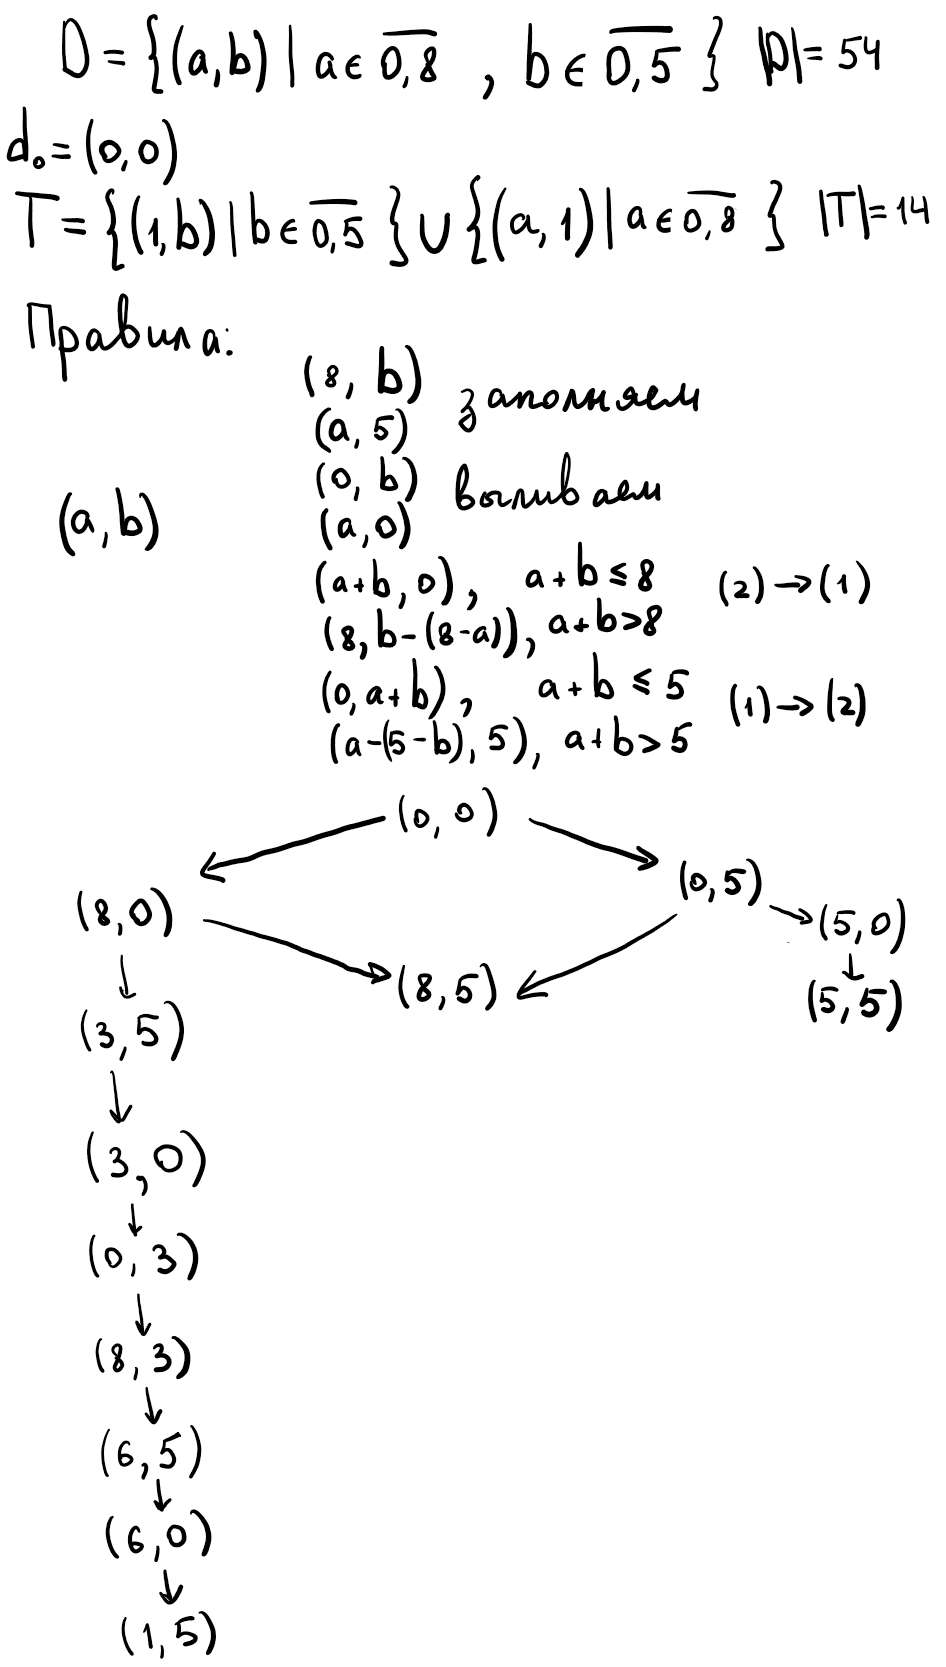 D = {(a,b) | a ∈ \overline{0,8} , b ∈ \overline{0,5} } |D| = 54
d₀ = (0,0)
T = {(1,b) | b ∈ \overline{0,5} } ∪ {(a,1) | a ∈ \overline{0,8} } |T| = 14
Правила:
(8, b) заполняем
(a, 5)
(0, b) выливаем
(a, b) (a, 0)
(a+b, 0), a+b ≤ 8 (2) → (1)
(8, b-(8-a)), a+b>8
(0, a+b), a+b ≤ 5 (1) → (2)
(a-(5-b), 5), a+b > 5
(0, 0)
(8, 0) (0, 5) → (5, 0)
(8, 5) (5, 5)
(3, 5)
(3, 0)
(0, 3)
(8, 3)
(6, 5)
(6, 0)
(1, 5)